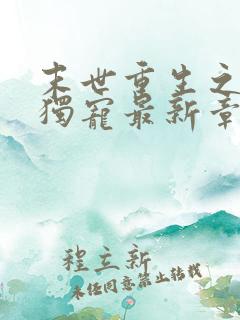 末世重生之
獨寵最新章
程立新
未经同意禁止转载